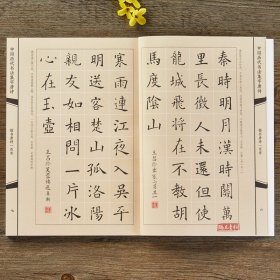 秦時明月漢時關萬
里長徵人未還但使
龍城飛將在不教胡
馬度陰山
王昌齡出塞二首其一
寒雨連江夜入吳平
明送客楚山孤洛陽
親友如相問一片冰
心在玉壺
王昌齡芙蓉樓送辛漸
中國歷代書法集字唐詩